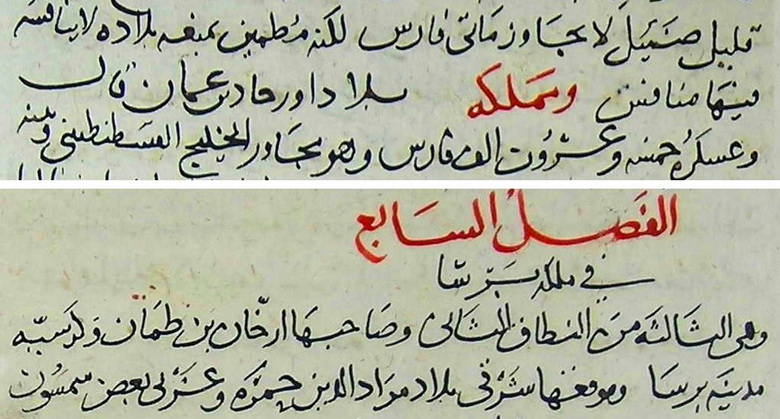 قليل ضئيل لا يجاوز مائتى فارس لكنه مطمئن بمنعه بلاده لا ينافسه
فيها منافس ومملكه بلاد داورخاد بن عمان قال
وعسكره خمسه وعشرون الف فارس وهو يجاور الخليج القسطنطينى وبينه
الفصل السابع
في مملكه برسا
وهى الثالثه من النطاق الثانى وصاحبها ارخان بن طمان وكرسيه
مدينه برسا وموقعها شرقى بلاد مراد الدين حمزه وغربى بعض سمسون